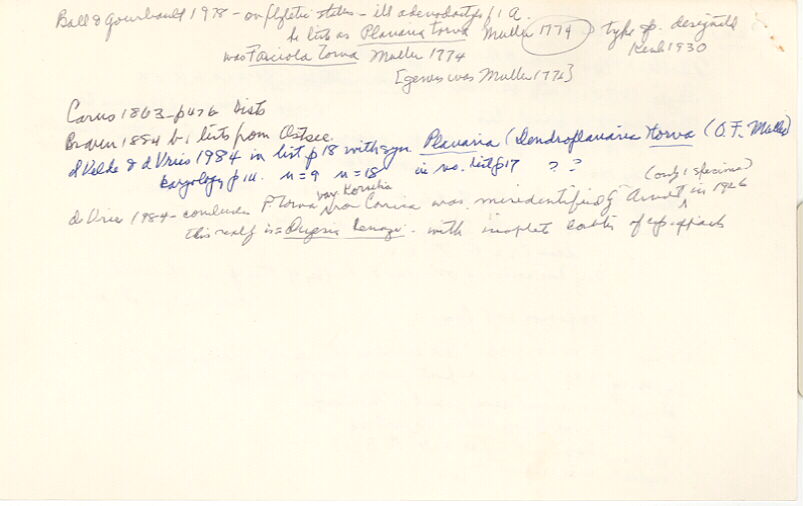 Ball & Gourbault 1978 - on
he lists as Planaria torva Muller 1774 type sp. designated
was Fasciola torva Muller 1774 Kenk 1930
[genus was Muller 1776]
Carus 1863 - p 476 lists
Braun 1884 lists from Ostsee.
& de Vries 1984 in list p 18 with syn Planaria (Dendroplanaria torva (O.F. Muller)
karyology p 14. n=9 n=18 in no. list p17 ? ?
(only 1 specimen)
de Vries 1984 - concludes P. torva var from Corsica was misidentified by Arndt in 1926
this really is = Dugesia benazzii. with